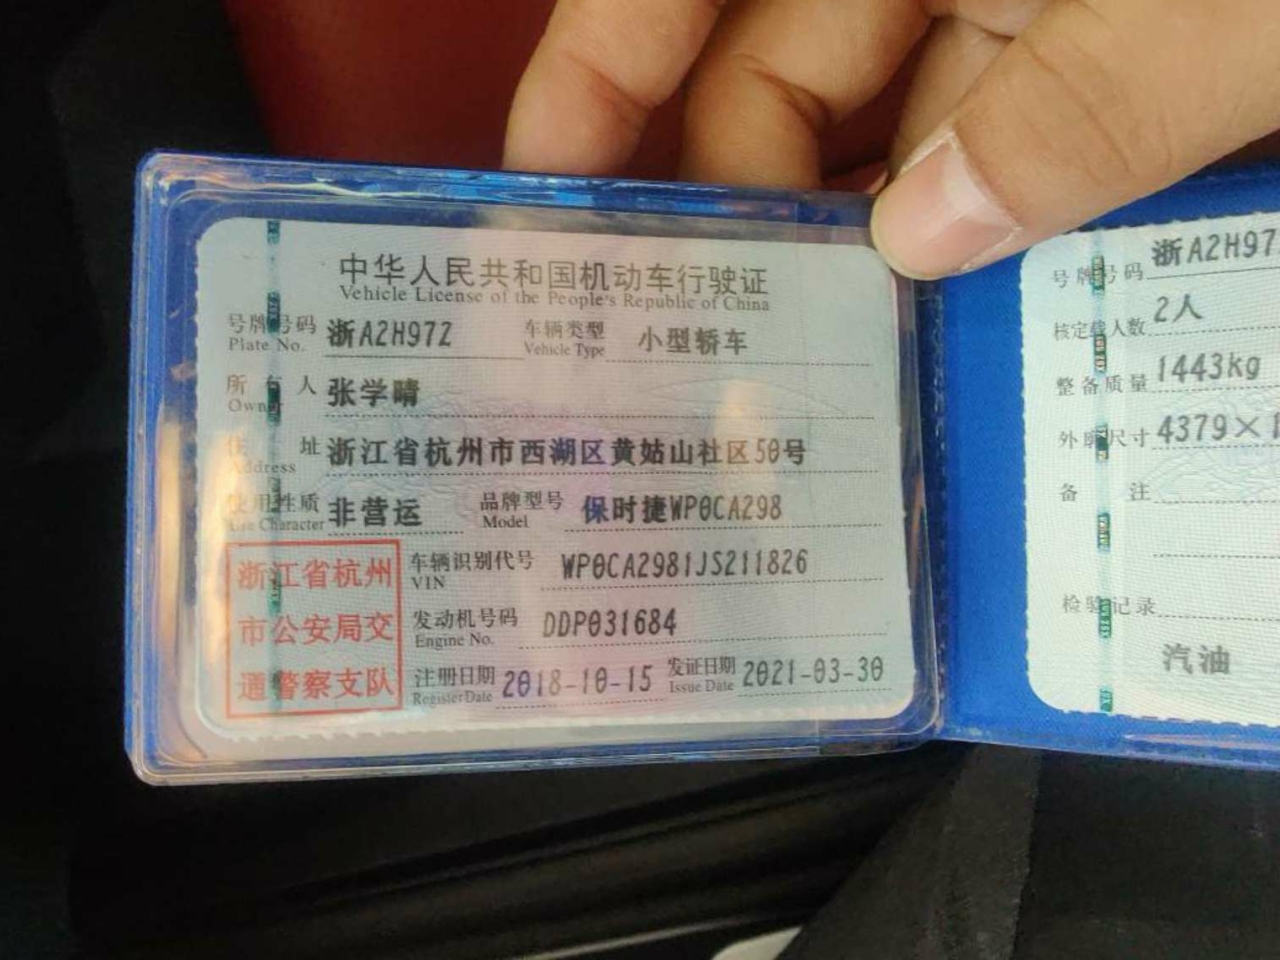 中华人民共和国机动车行驶证
Vehicle License of the People's Republic of China
号牌号码 浙A2H97Z 车辆类型 小型轿车
Plate No. Vehicle Type
所有人 张学晴
Owner
住址 浙江省杭州市西湖区黄姑山社区50号
Address
使用性质 非营运 品牌型号 保时捷WP0CA298
Use Character Model
浙江省杭州
市公安局交
通警察支队
车辆识别代号 WP0CA2981JS211826
VIN
发动机号码 DDP031684
Engine No.
注册日期 2018-10-15 发证日期 2021-03-30
Register Date Issue Date
号牌号码 浙A2H97
核定载人数 2人
整备质量 1443kg
外廓尺寸 4379×1
备注
检验记录
汽油